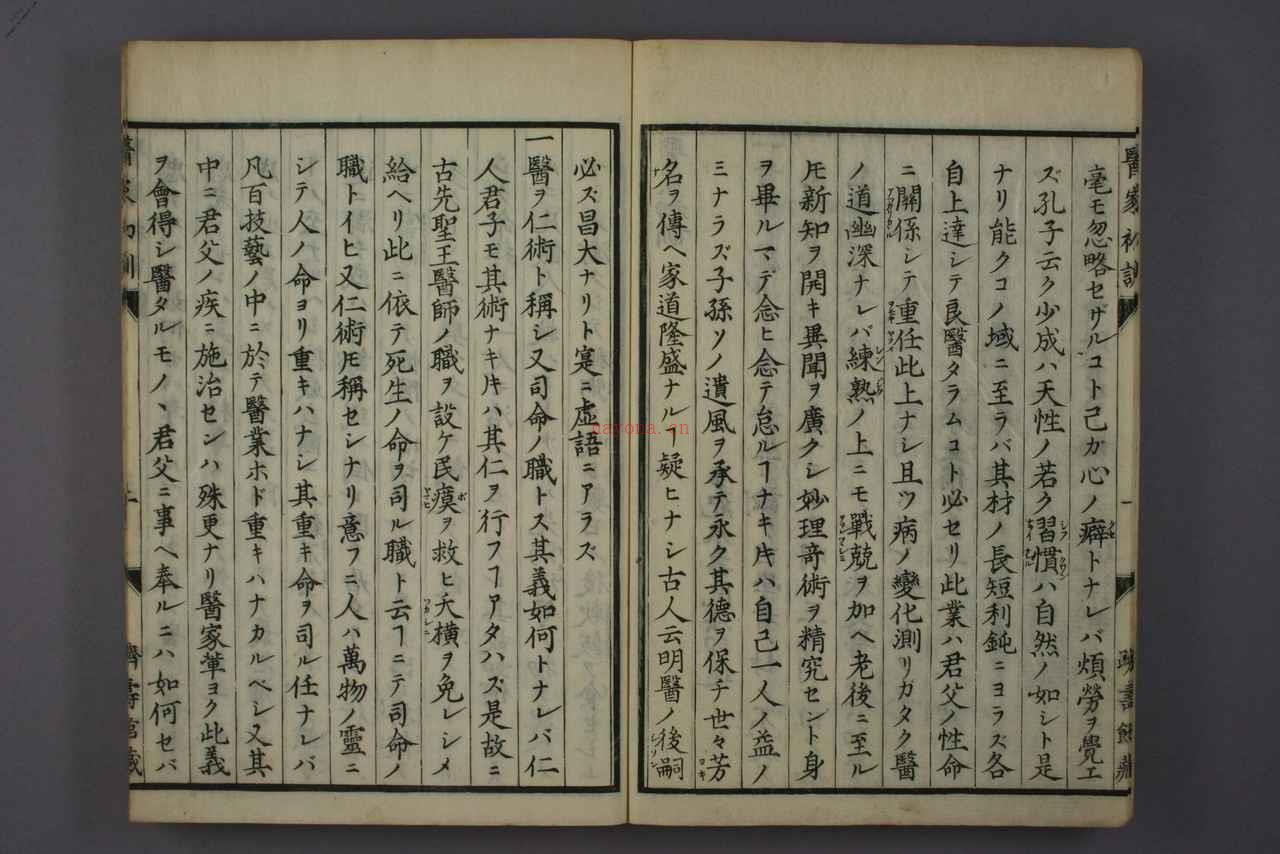 毫モ忽略セザルコト己ガ心ノ癖トナレバ煩勞ヲ覺エ
ズ孔子云ク少成ハ天性ノ若ク習慣ハ自然ノ如シト是
ナリ能クコノ域ニ至ラバ其材ノ長短利鈍ニヨラズ各
自上達シテ良醫タラムコト必セリ此業ハ君父ノ性命
ニ關係シテ重任此上ナシ且ツ病ノ變化測リカタク醫
ノ道幽深ナレバ練熟ノ上ニモ戰兢ヲ加ヘ老後ニ至ル
𪜈新知ヲ開キ異聞ヲ廣クシ妙理奇術ヲ精究セント身
ヲ畢ルマデ念ヒ念テ怠ルヿナキ𪜈ハ自己一人ノ益ノ
ミナラズ子孫ソノ遺風ヲ承テ永ク其德ヲ保チ世々芳
名ヲ傳ヘ家道隆盛ナルヿ疑ヒナシ古人云明醫ノ後嗣
必ズ昌大ナリト寔ニ虛語ニアラズ
一醫ヲ仁術ト稱シ又司命ノ職トス其義如何トナレバ仁
人君子モ其術ナキ𪜈ハ其仁ヲ行フヿアタハズ是故ニ
古先聖王醫師ノ職ヲ設ケ民瘼ヲ救ヒ夭橫ヲ免レシメ
給ヘリ此ニ依テ死生ノ命ヲ司ル職ト云ヿニテ司命ノ
職トイヒ又仁術𪜈稱セシナリ意フニ人ハ萬物ノ靈ニ
シテ人ノ命ヨリ重キハナシ其重キ命ヲ司ル任ナレバ
凡百技藝ノ中ニ於テ醫業ホド重キハナカルベシ又其
中ニ君父ノ疾ニ施治センハ殊更ナリ醫家輩ヨク此義
ヲ會得シ醫タルモノヽ君父ニ事ヘ奉ルニハ如何セバ